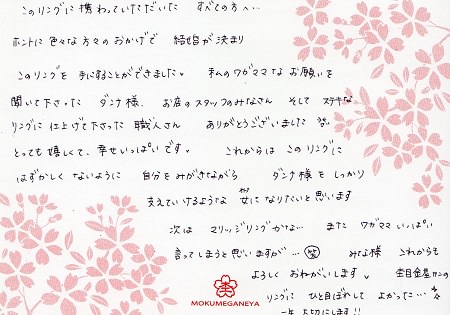 このリングに携わっていただいた すべての方へ…
ホントに色々な方々のおかげで 結婚が決まり
このリングを 手にすることができました。 私のワガママなお願いを
聞いて下さった ダンナ様、 お店のスタッフのみなさん そして ステキな
リングに 仕上げて下さった 職人さん ありがとうございました
とっても嬉しくて、幸せいっぱいです。 これからは このリングに
はずかしくないように 自分をみがきながら ダンナ様を しっかり
支えていけるような 女になりたいと思います
次は マリッジリングかな… また ワガママいっぱい
言ってしまうと思いますが…(笑) みな様 これからも
よろしく おねがいします。 杢目金屋サンの
リングに ひと目ぼれして よかった…
一生 大切にします!!
MOKUMEGANEYA